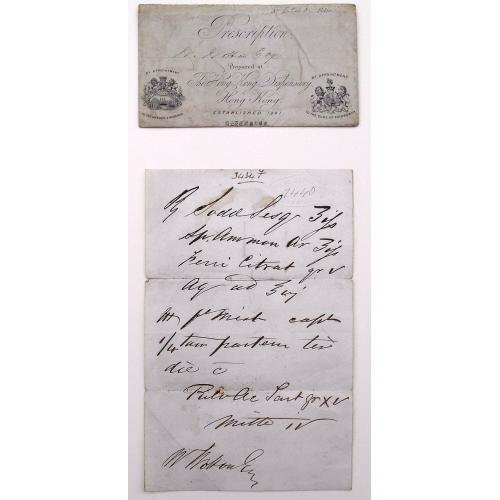 Prescription
Prepared at
The Hong Kong Dispensary
Hong Kong.
ESTABLISHED 1841
BY APPOINTMENT
BY APPOINTMENT
3434 7
7440
℞ Sodæ Sesq ʒijs
Sp. Ammon Ar ʒijs
Ferri Citrat gr v
Aq ad ℥vj
ft Mist capt
1/4 tam partem ter
die c̄
Pulv Ac Tart gr xv
Mitte iv
W Esq